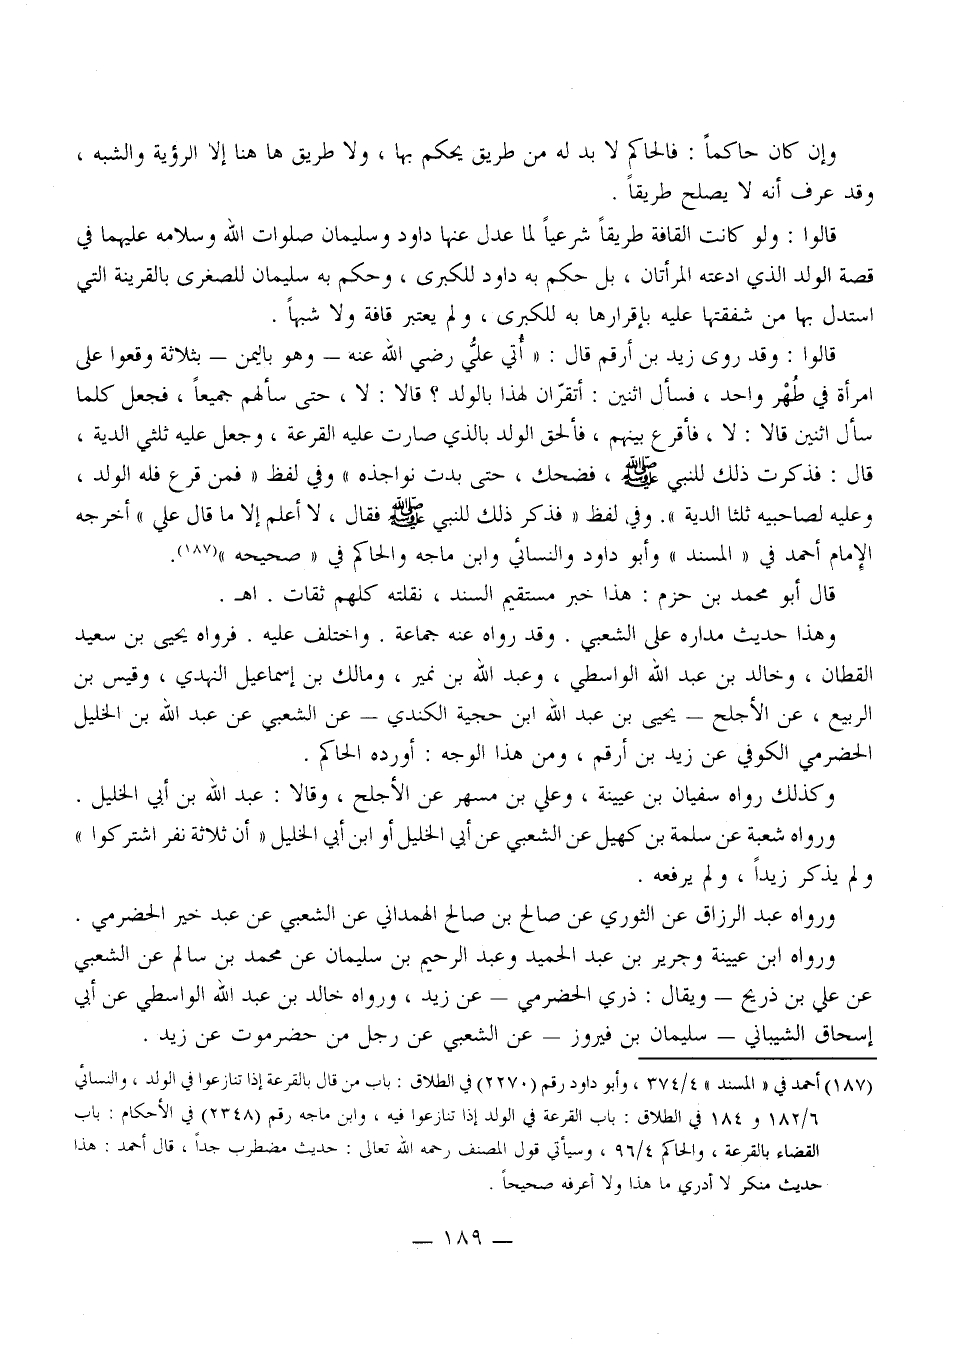 وإن كان حاكماً : فالحاكم لا بد له من طريق يحكم بها ، ولا طريق ها هنا إلا الرؤية والشبه ،
وقد عرف أنه لا يصلح طريقاً .
قالوا : ولو كانت القافة طريقاً شرعياً لما عدل عنها داود وسليمان صلوات الله وسلامه عليهما في
قصة الولد الذي ادعته المرأتان ، بل حكم به داود للكبرى ، وحكم به سليمان للصغرى بالقرينة التي
استدل بها من شفقتها عليه بإقرارها به للكبرى ، ولم يعتبر قافة ولا شبهاً .
قالوا : وقد روى زيد بن أرقم قال : « أُتي عليُّ رضي الله عنه – وهو باليمن – بثلاثة وقعوا على
امرأة في طُهْر واحد ، فسأل اثنين : أتقرّان لهذا بالولد ؟ قالا : لا ، حتى سألهم جميعاً ، فجعل كلما
سأل اثنين قالا : لا ، فأقرع بينهم ، فألحق الولد بالذي صارت عليه القرعة ، وجعل عليه ثلثي الدية ،
قال : فذكرت ذلك للنبي ﷺ ، فضحك ، حتى بدت نواجذه » وفي لفظ « فمن قرع فله الولد ،
وعليه لصاحبيه ثلثا الدية ». وفي لفظ « فذكر ذلك للنبي ﷺ فقال ، لا أعلم إلا ما قال علي » أخرجه
الإمام أحمد في « المسند » وأبو داود والنسائي وابن ماجه والحاكم في « صحيحه »(١٨٧).
قال أبو محمد بن حزم : هذا خبر مستقيم السند ، نقلته كلهم ثقات . اهـ .
وهذا حديث مداره على الشعبي . وقد رواه عنه جماعة . واختلف عليه . فرواه يحيى بن سعيد
القطان ، وخالد بن عبد الله الواسطي ، وعبد الله بن نمير ، ومالك بن إسماعيل النهدي ، وقيس بن
الربيع ، عن الأجلح – يحيى بن عبد الله ابن حجية الكندي – عن الشعبي عن عبد الله بن الخليل
الحضرمي الكوفي عن زيد بن أرقم ، ومن هذا الوجه : أورده الحاكم .
وكذلك رواه سفيان بن عيينة ، وعلي بن مسهر عن الأجلح ، وقالا : عبد الله بن أبي الخليل .
ورواه شعبة عن سلمة بن كهيل عن الشعبي عن أبي الخليل أو ابن أبي الخليل « أن ثلاثة نفر اشتركوا »
ولم يذكر زيداً ، ولم يرفعه .
ورواه عبد الرزاق عن الثوري عن صالح بن صالح الهمداني عن الشعبي عن عبد خير الحضرمي .
ورواه ابن عيينة وجرير بن عبد الحميد وعبد الرحيم بن سليمان عن محمد بن سالم عن الشعبي
عن علي بن ذريح – ويقال : ذري الحضرمي – عن زيد ، ورواه خالد بن عبد الله الواسطي عن أبي
إسحاق الشيباني – سليمان بن فيروز – عن الشعبي عن رجل من حضرموت عن زيد .
(١٨٧) أحمد في « المسند » ٣٧٤/٤ ، وأبو داود رقم (٢٢٧٠) في الطلاق : باب من قال بالقرعة إذا تنازعوا في الولد ، والنسائي
١٨٢/٦ و ١٨٤ في الطلاق : باب القرعة في الولد إذا تنازعوا فيه ، وابن ماجه رقم (٢٣٤٨) في الأحكام : باب
القضاء بالقرعة ، والحاكم ٩٦/٤ ، وسيأتي قول المصنف رحمه الله تعالى : حديث مضطرب جداً ، قال أحمد : هذا
حديث منكر لا أدري ما هذا ولا أعرفه صحيحاً .
– ١٨٩ –